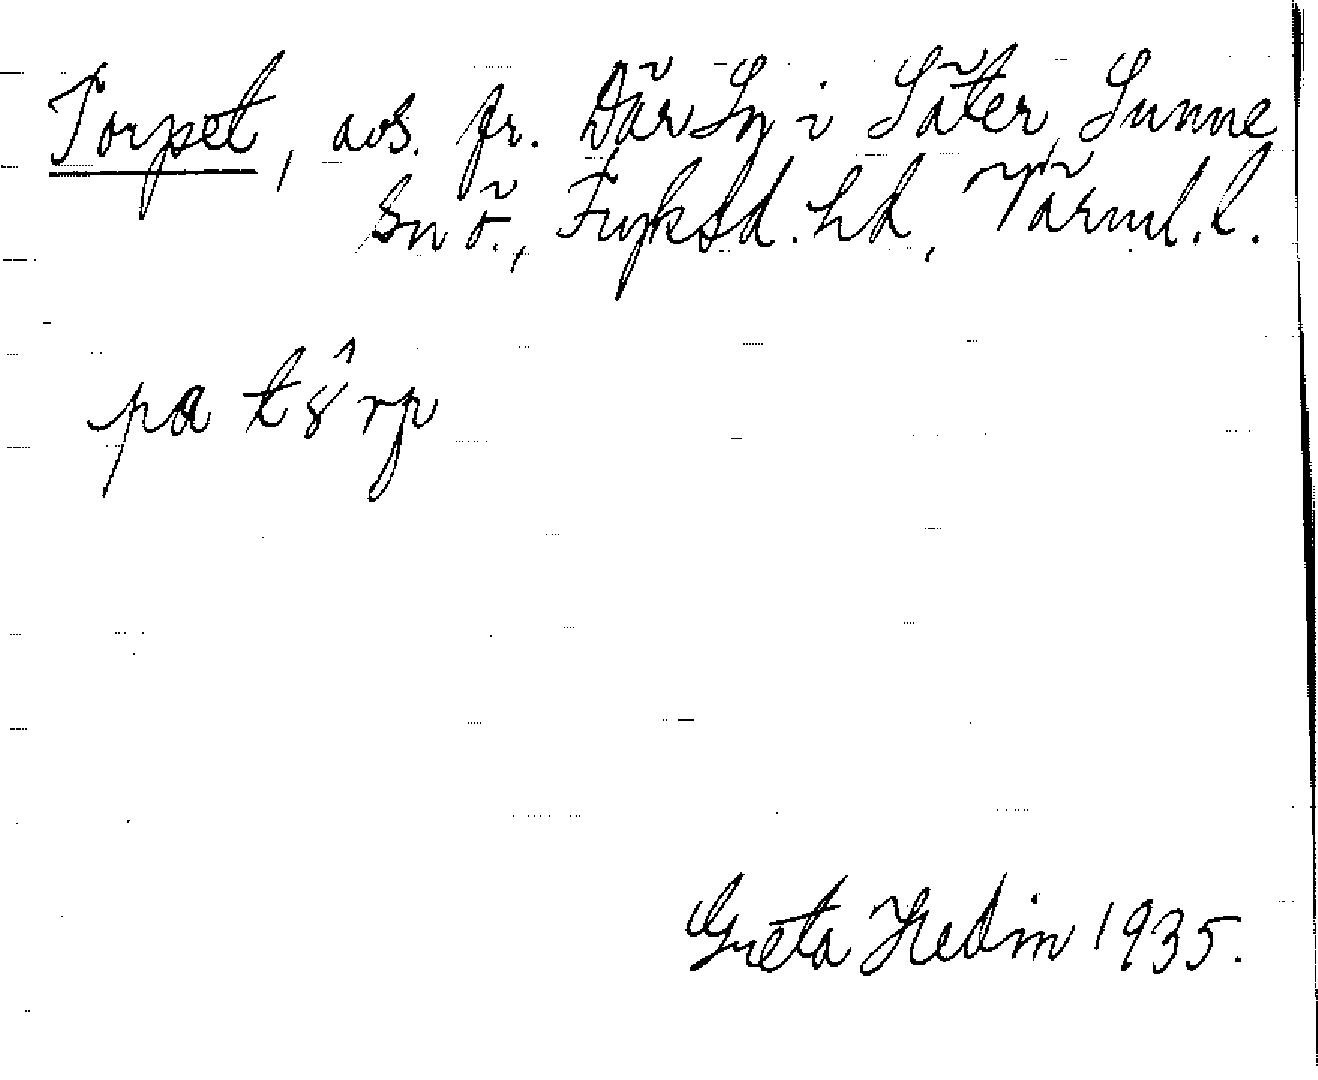 Torpet, avs. fr. Där Sy i Säter, Sunne
sn ö., Fryksd. hd, Värml. l.
pa tȣ̂rp
Greta Hedin 1935.